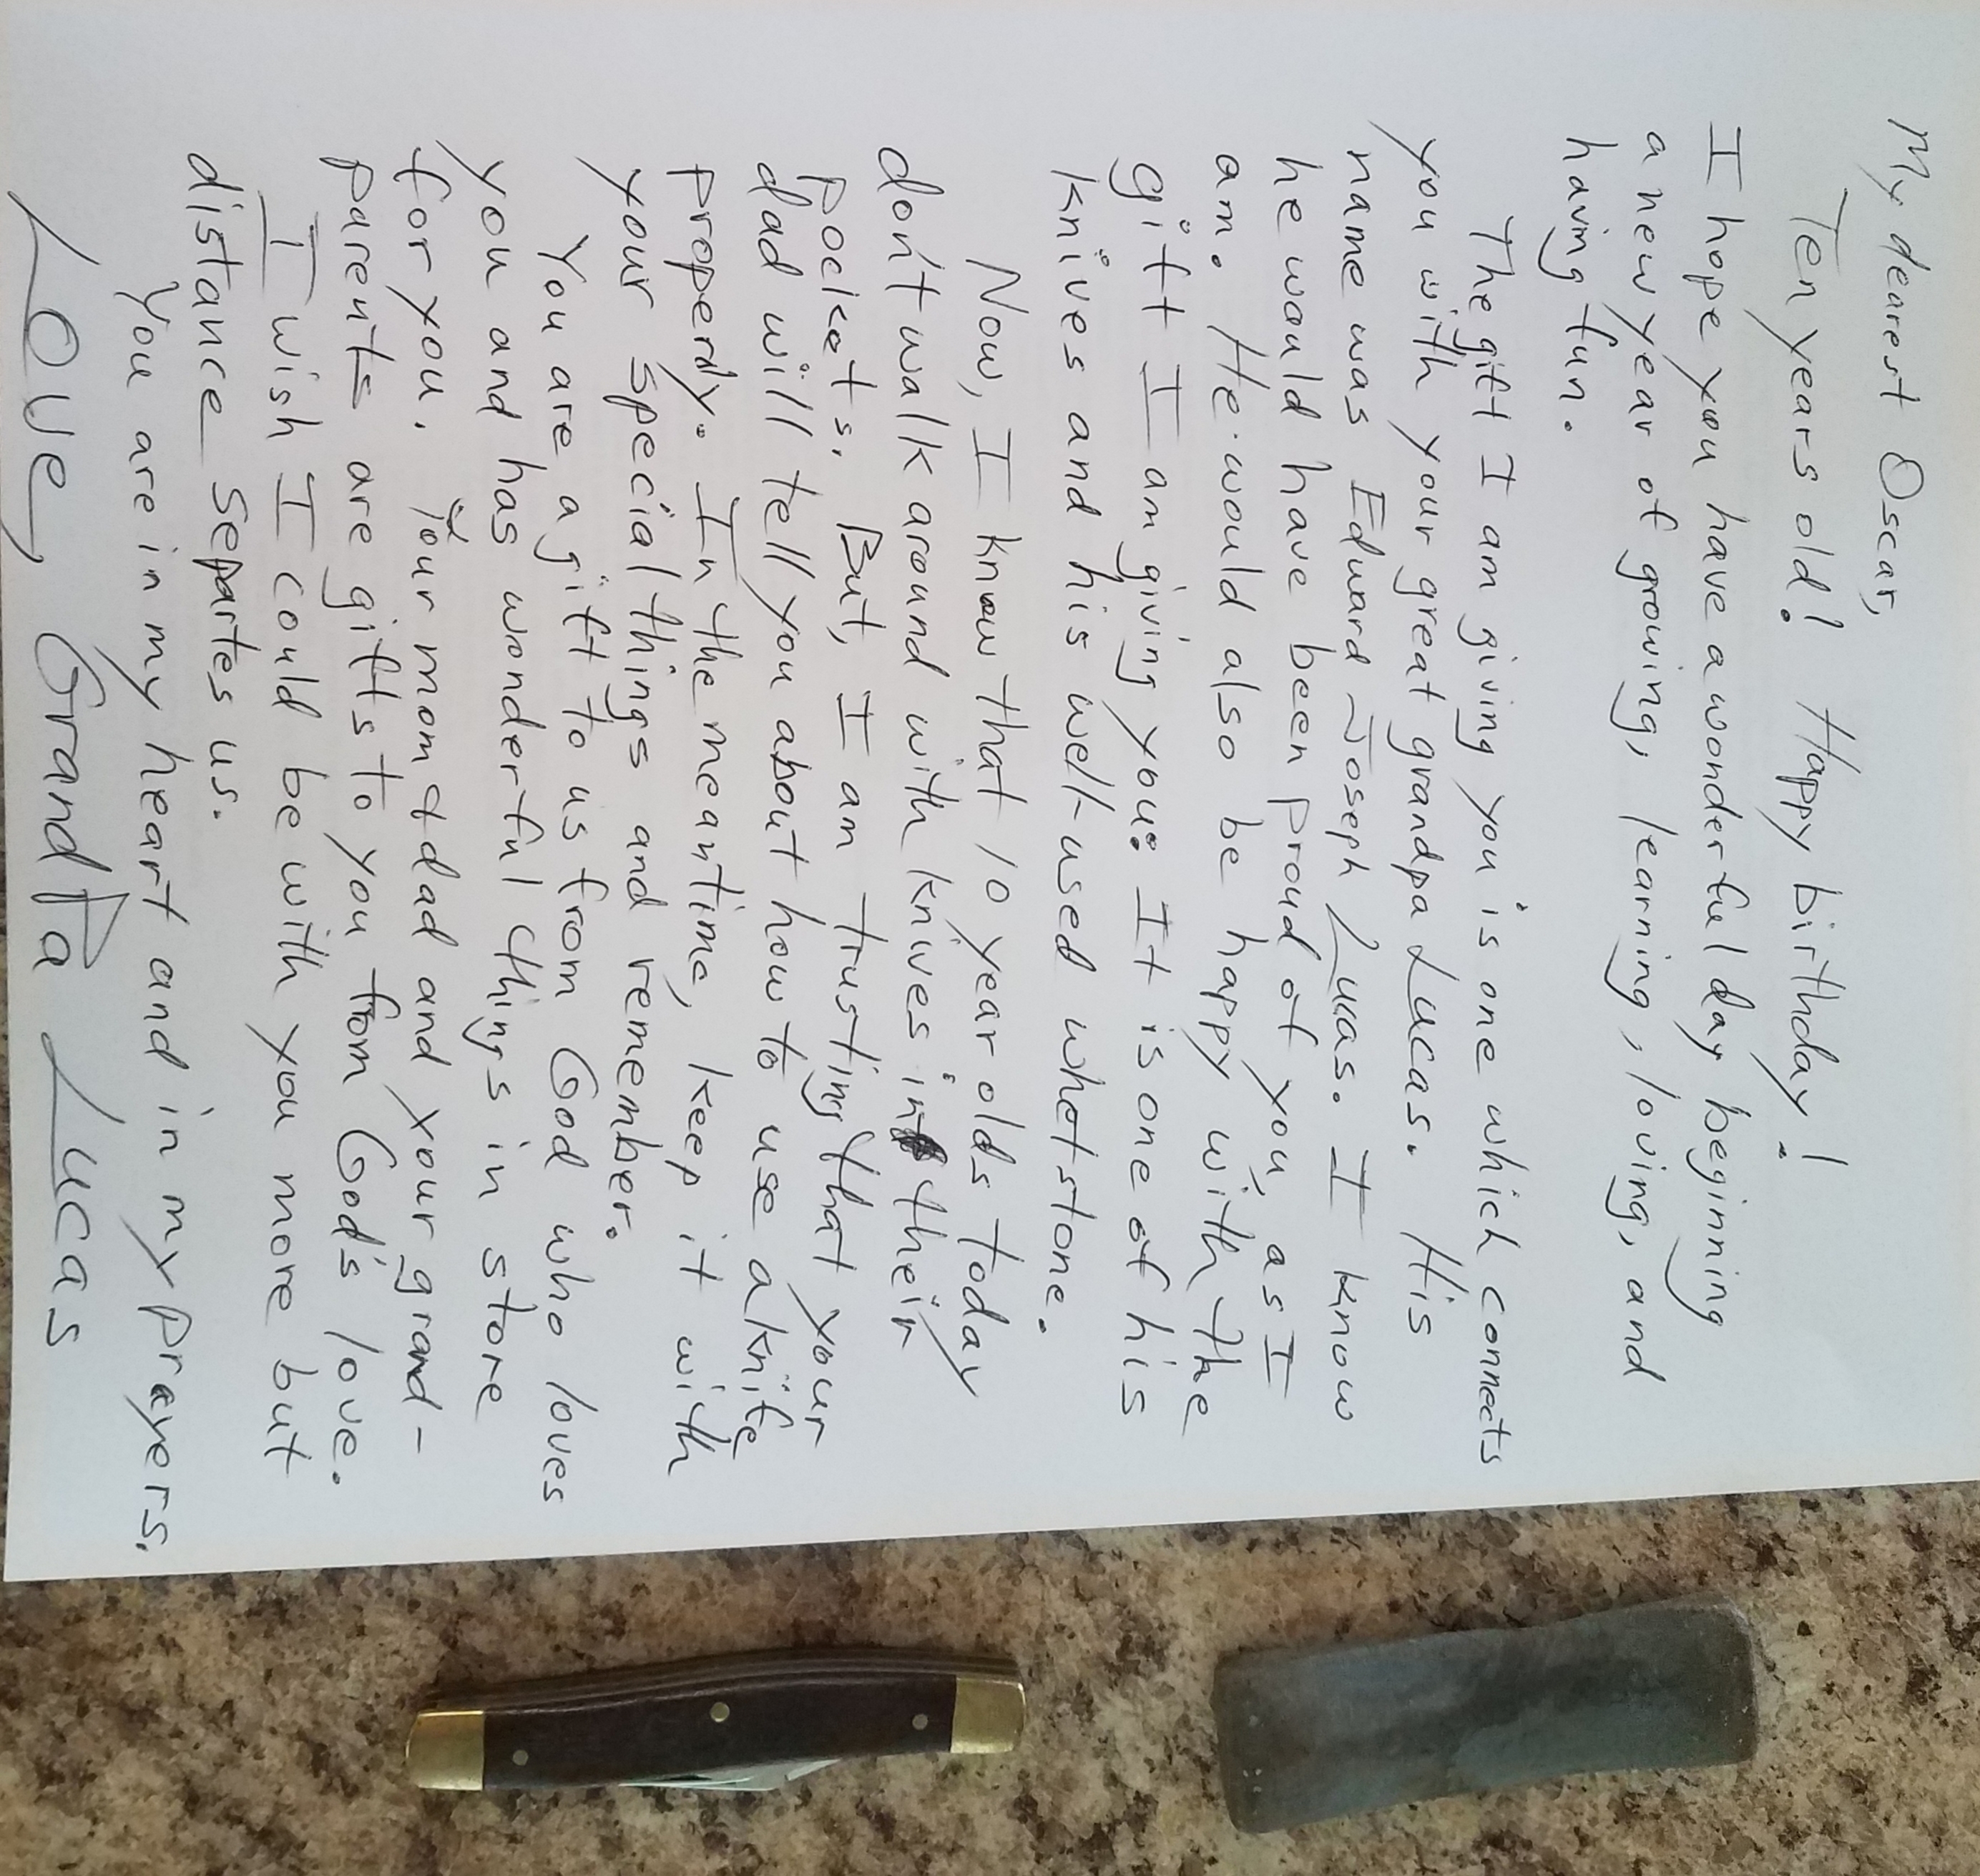 My dearest Oscar,
Ten years old! Happy birthday!
I hope you have a wonderful day beginning
a new year of growing, learning, loving, and
having fun.
The gift I am giving you is one which connects
you with your great grandpa Lucas. His
name was Edward Joseph Lucas. I know
he would have been proud of you, as I
am. He would also be happy with the
gift I am giving you: It is one of his
knives and his well-used whetstone.
Now, I know that 10 year olds today
don't walk around with knives in their
pockets. But, I am trusting that your
dad will tell you about how to use a knife
properly. In the meantime, keep it with
your special things and remember.
You are a gift to us from God who loves
you and has wonderful things in store
for you. Your mom & dad and your grand-
parents are gifts to you from God's love.
I wish I could be with you more but
distance separtes us.
You are in my heart and in my prayers.
Love, GrandPa Lucas